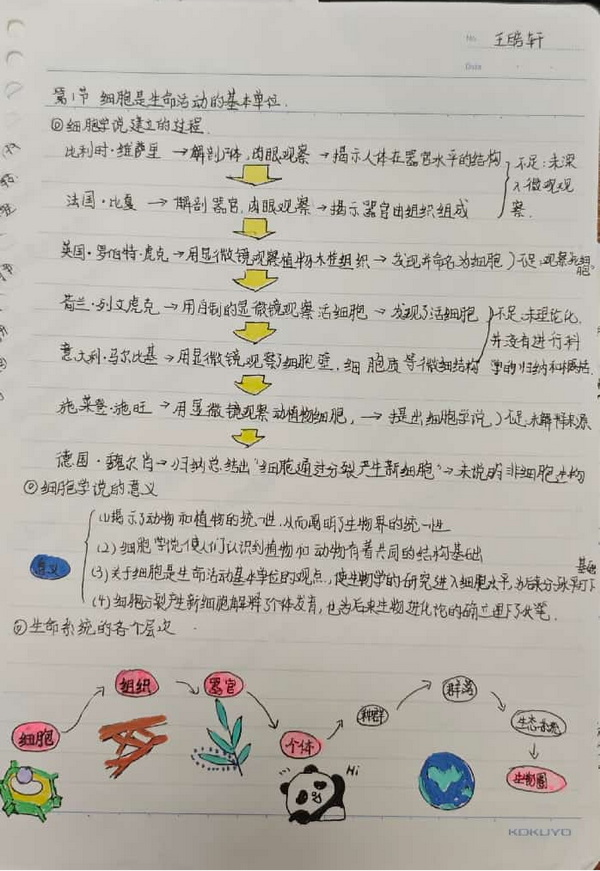 No.
王皓轩
Date
第1节 细胞是生命活动的基本单位.
◎细胞学说建立的过程.
比利时·维萨里 →解剖尸体,肉眼观察 →揭示人体在器官水平的结构
不足:未深
入微观观
察.
法国·比夏 → 解剖器官,肉眼观察 →揭示器官由组织组成
英国·罗伯特·虎克 →用显微镜观察植物木栓组织 → 发现并命名为细胞 不足:观察死细
胞
荷兰·列文虎克 → 用自制的显微镜观察活细胞 → 发现了活细胞
不足:未理论化,
并没有进行科
学的归纳和概括.
意大利·马尔比基 → 用显微镜观察了细胞壁,细胞质等微细结构
施莱登·施旺 → 用显微镜观察动植物细胞, → 提出细胞学说 不足:未解释来源
德国·魏尔肖→归纳总结出"细胞通过分裂产生新细胞"→未说明非细胞生物
◎细胞学说的意义
意义
(1)揭示了动物和植物的统一性,从而阐明了生物界的统一性
(2) 细胞学说使人们认识到植物和动物有着共同的结构基础
(3) 关于细胞是生命活动基本单位的观点,使生物学的研究进入细胞水平,为后来分子水平打下
基础
(4) 细胞分裂产生新细胞解释了个体发育,也为后来生物进化论的确立埋下伏笔.
◎生命系统的各个层次
细胞
组织
器官
个体
种群
群落
生态系统
生物圈
Hi
KOKUYO